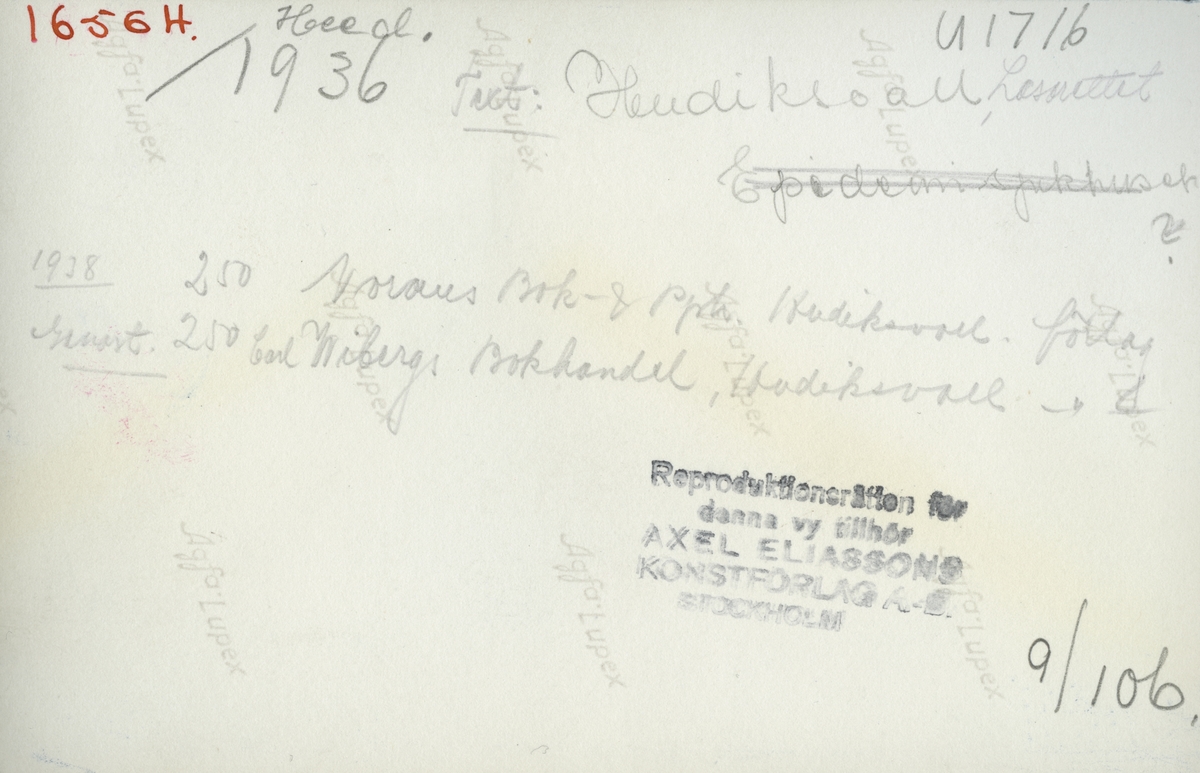 1656 H.
Heed.
U 17/6
1936
Text: Hudiksvall, Lasarettet
Epidemisjukhuset
?
1938
250 Norans Bok- & Ppr. Hudiksvall. förlag
250 Carl Wibergs Bokhandel, Hudiksvall
Reproduktionsrätten för
denna vy tillhör
AXEL ELIASSONS
KONSTFÖRLAG A.-B.
STOCKHOLM
9/106.
Agfa-Lupex
Agfa-Lupex
Agfa-Lupex
Agfa-Lupex
Agfa-Lupex
Agfa-Lupex
Agfa-Lupex
Agfa-Lupex
Agfa-Lupex